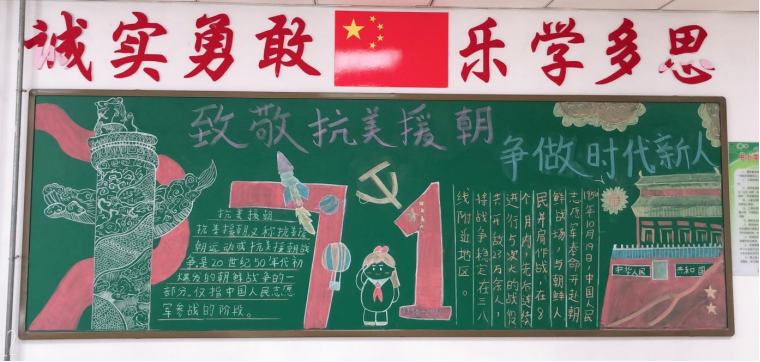 诚实勇敢 乐学多思
致敬抗美援朝
争做时代新人
抗美援朝
抗美援朝又称抗美援
朝运动或抗美援朝战
争是20世纪50年代初
爆发的朝鲜战争的一
部分，仅指中国人民志愿
军参战的阶段。
71
10月19日中国人民
志愿军奉命开赴朝
鲜战场，与朝鲜人
民并肩作战，在8
个月内，先后连续
进行5次大的战役
共歼敌23万余人，
将战争稳定在三八
线附近地区。
中华人民 共和国